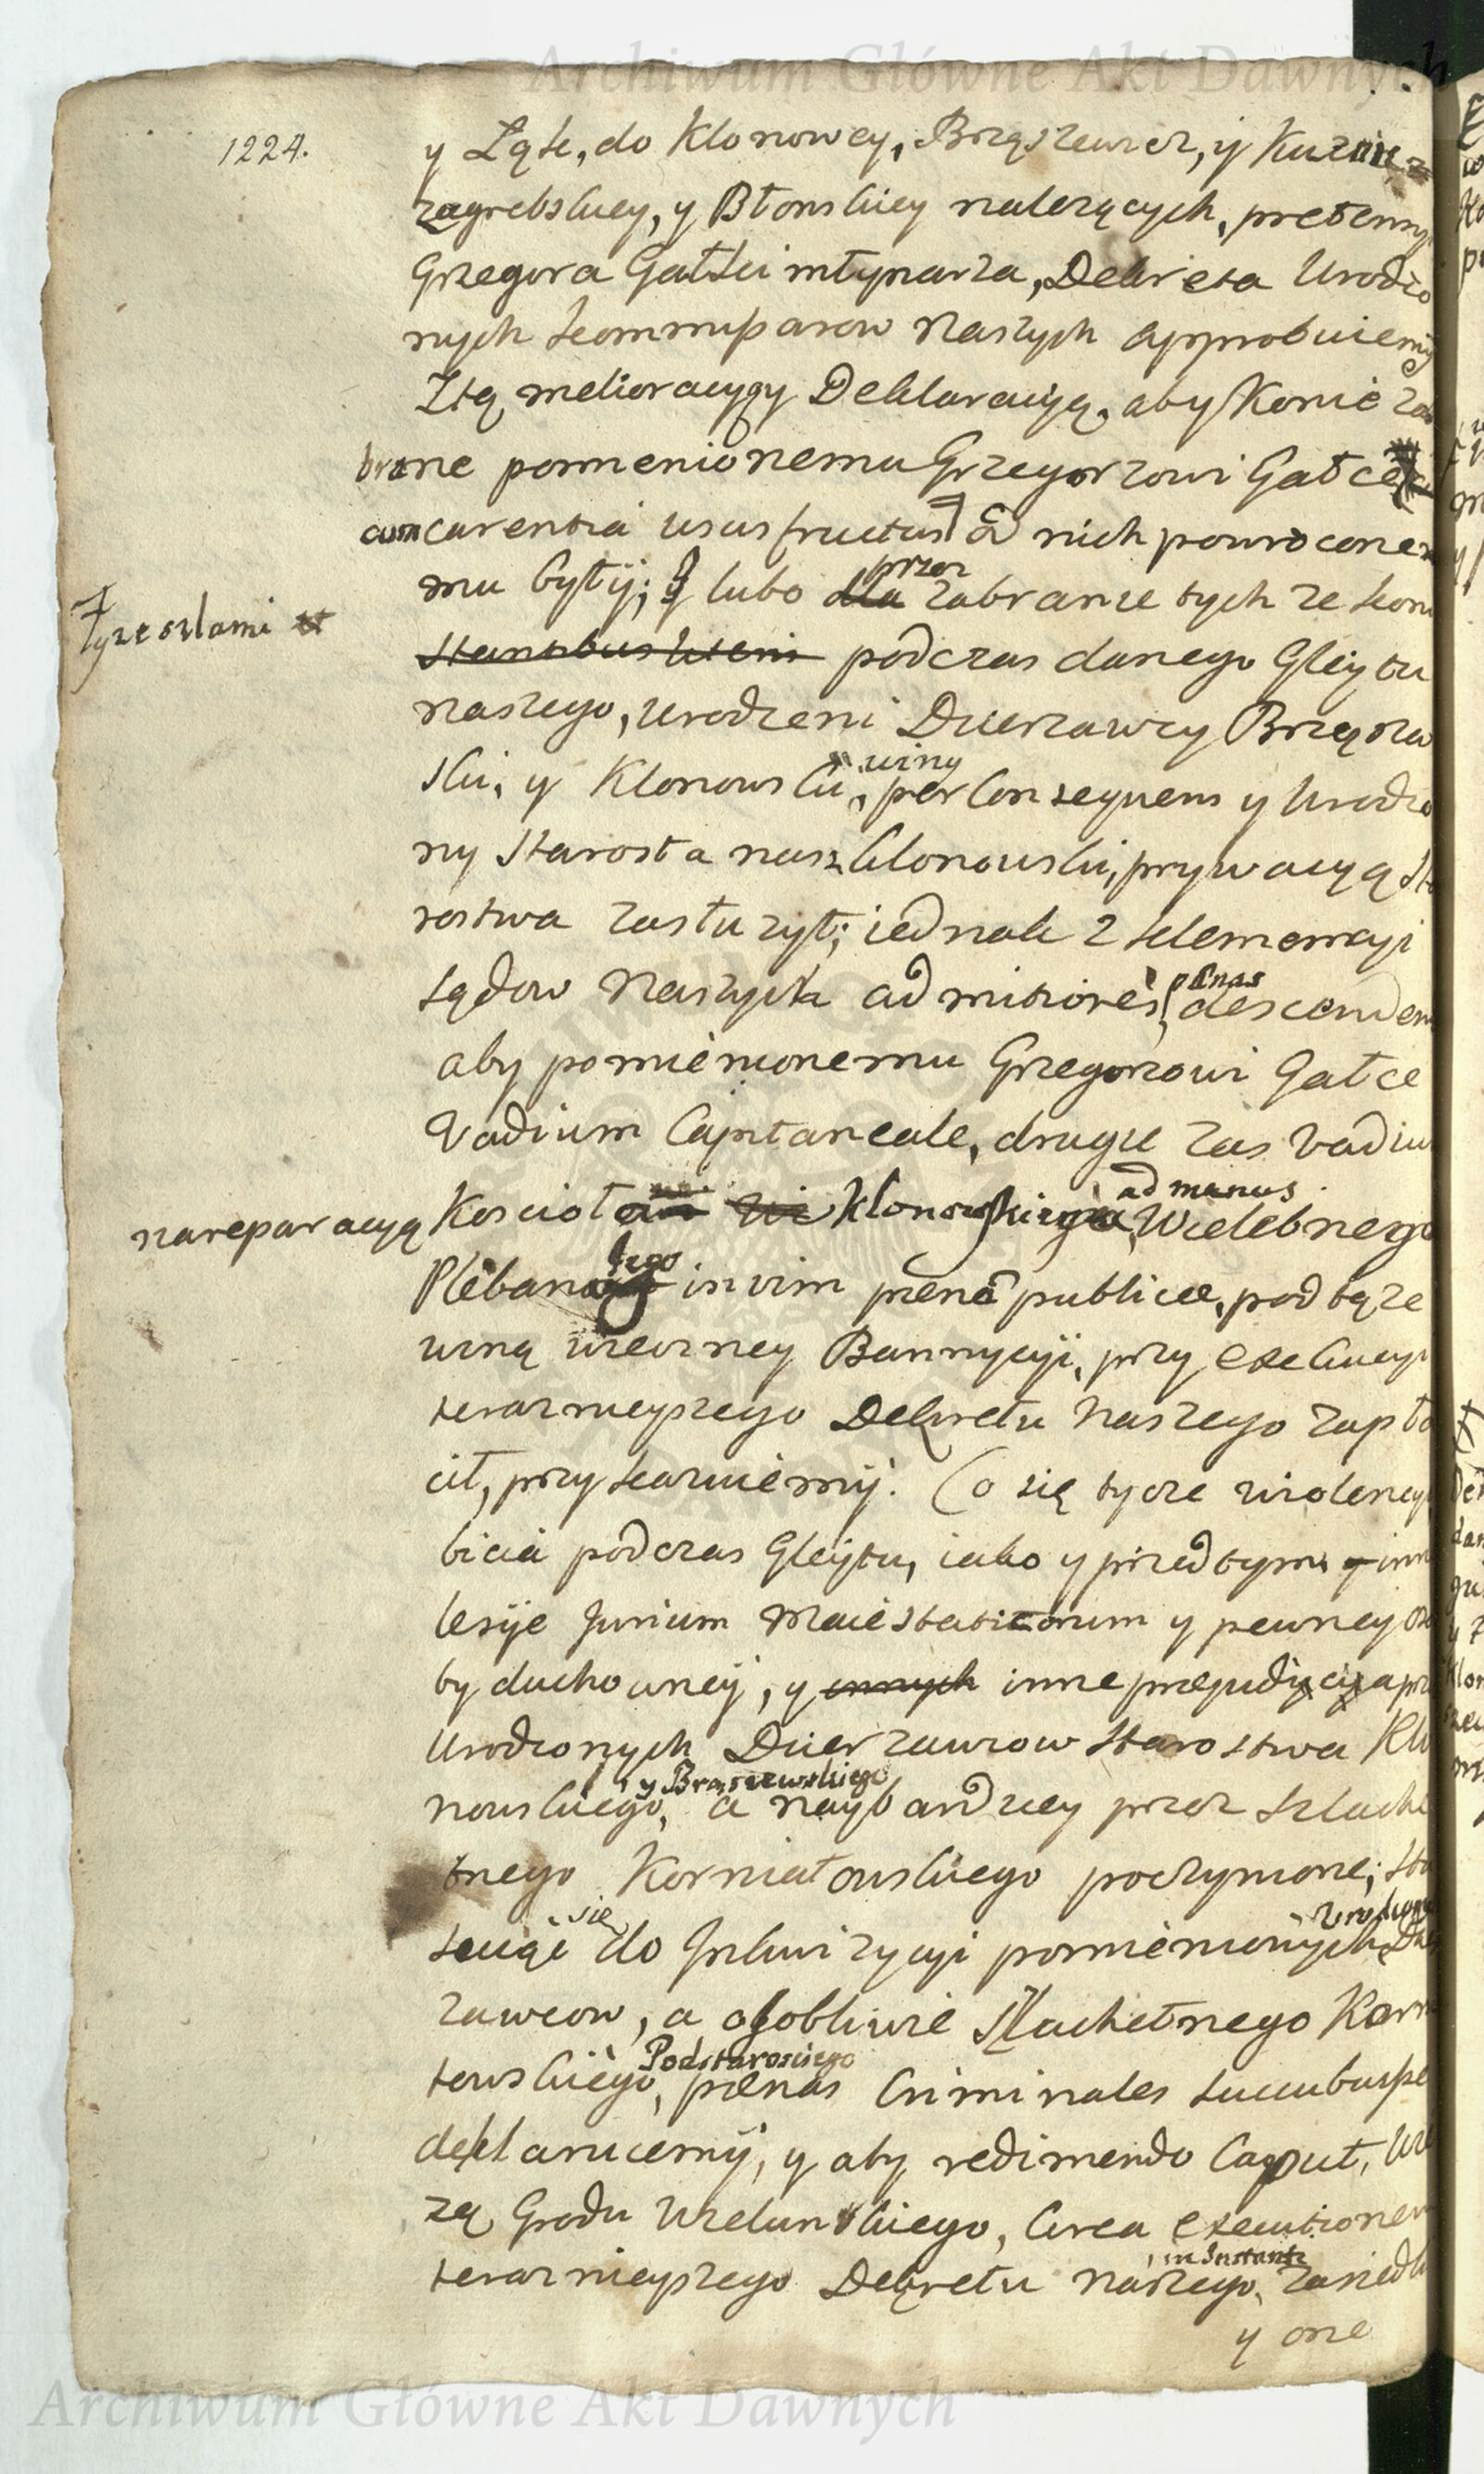 Archiwum Główne Akt Dawnych
1224.
y Łąk, do Klonowey, Brąszewicz, y Kuznic
zagrebskiey, y Błonskiey nalezących, pretensyi
Grzegora Gałki młynarza, Dekreta Urodzo
nych kommissarow Naszych approbuiemy
Z tą melioracyą y Deklaracyą, aby Konie za
brane pomienionemu Grzegorzowi Gałce
cum carentia ususfructus od nich powrocone
mu były; y lubo przez zabranie tych ze koni
podczas danego Gleytu
‡ y ze szlami
naszego, urodzeni Dzierzawcy Brąszew
ski, y Klonowski, winy per consequens y Urodzo
ny Starosta nasz Klonowski, prywacyą Sta
rostwa zasłuzył; iednak z klemencyi
sądow Naszych ad mitiores pœnas descenden
aby pomienionemu Grzegorzowi Gałce
Vadium Capitaneale, drugie zas vadiu
na reparacyą Koscioła Klonowskiego ad manus Wielebnego
Plebana tego in vim pœnæ publicæ, pod tąze
winą wieczney Bannicyji, przy exekucyi
teraznieyszego Dekretu Naszego zapła
cił, przykazuiemy. Co się tycze violency
bicia podczas Gleytu, iako y przed tym y inn
lesyje Jurium Maiestaticorum y pewney oso
by duchowney, y innych inne prejudycyja prz
Urodzonych Dzierzawcow Starostwa Klo
nowskiego, y Brąszewskiego a naybardziey przez szlache
tnego Korniatowskiego poczynione; sto
suiąc się do Inkwizycyi pomienionych Urodzonych Dzier
zawcow, a osobliwie Szlachetnego Korn
towskiego, Podstarosciego pœnas Criminales succubuisse
deklaruiemy, y aby redimendo Caput, Wie
zą Grodu Wielunskiego, circa executionem
terazniejszego Dekretu naszego, in Instanti zasiedli
y one
Archiwum Główne Akt Dawnych